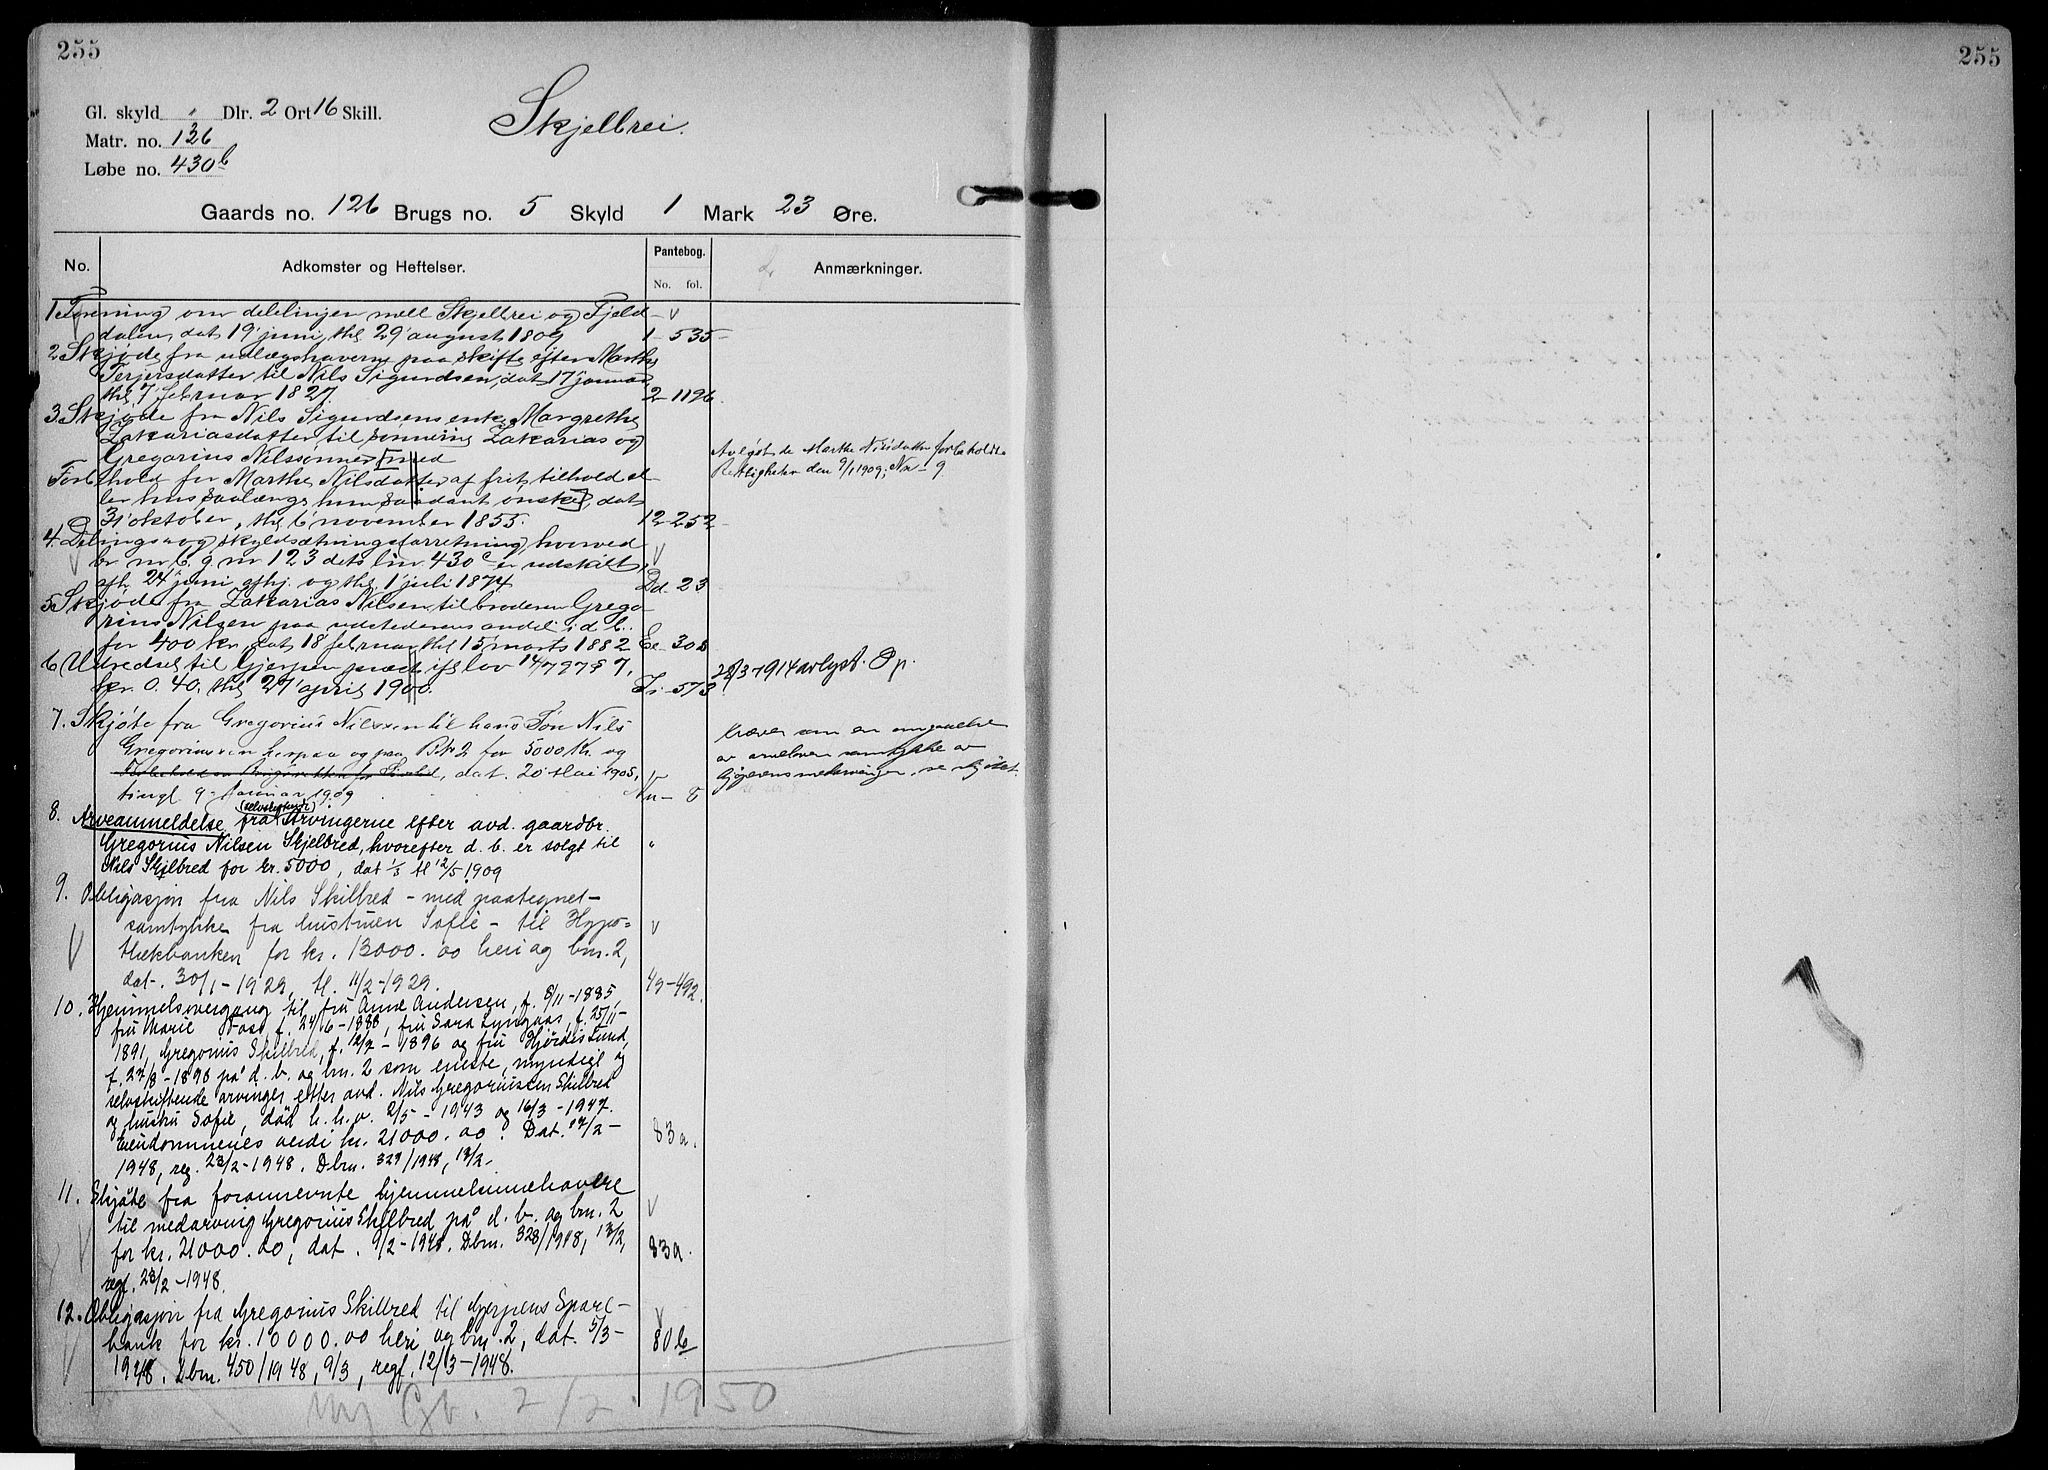 255
255
Gl. skyld " Dlr. 2 Ort 16 Skill.
Skjelbrei.
Matr. no. 136
Løbe no. 430 b
Gaards no. 126 Brugs no. 5 Skyld 1 Mark 23 Øre.
No. Adkomster og Heftelser. Pantebog. Anmærkninger.
No. fol.
1 Forening om delelinjen mell Skjelbrei og Fjeld-
dalen, dat 19 juni, thl 29 august 1809 1-535
2 Skjøde fra udlægshaverne paa skifte efter Marthe
Terjersdatter til Nils Sigurdsen, dat 17 januar,
thl 7 februar 1827. 2-1196
3. Skjøde fra Nils Sigurdsens enke Margrethe
Zakariasdatter til sønnerne Zakarias og
Gregorius Nilssønner [med
Forbehold for Marthe Nilsdatter af frit tilhold el-
ler hus saalænge hun saadant ønsker], dat
31 oktober, thl 6 november 1855. 12-252
Avløst de Marthe Nilsdatter forbeholdte
Rettigheder den 9/1 1909; Nn-9
4. Delings og skyldsætningsforretning, hvorved
br nr 6 g. nr 123 dets lnr. 430 c er udskilt,
afh. 24 juni afhj. og thl 1 juli 1874 Dd. 23
5. Skjøde fra Zakarias Nilsen til broderen Grego-
rius Nilsen paa udstederens andel i d. b.
for 400 kr, dat 18 februar thl 15 marts 1882 Ee 308
6 Udredsel til Gjerpen præst. ifl lov 14/7 97 § 7,
kr. 0.40. thl 27 april 1900. Ii-573
22/3-1914 avlyst. Op.
7. Skjøte fra Gregorius Nilssen til hans Søn Nils
Gregoriussen herpaa og paa Br. 2 for 5000 Kr. og
Forbehold om, dat. 20 Mai 1905,
tingl. 9 Januar 1909 Nn-8
som en omgaaelse
av arveloven samtykke av
8. Arveanmeldelse fra (selvskiftende) Arvingerne efter avd. gaardbr.
Gregorius Nilsen Skjelbred, hvorefter d. b. er solgt til "
Nils Skjelbred for kr. 5000, dat 1/5 tl 12/5 1909
9. Obligasjon fra Nils Skilbred - med paategnet
samtykke fra hustruen Sofie - til Hypo-
thekbanken for kr. 13000.00 heri og bnr. 2,
dat. 30/1-1929, tl. 11/2-1929. 49-492.
10. Hjemmelsovergang til fru Anne Andersen, f. 8/11-1885,
fru Marie Foss, f. 24/6-1888, fru Sara Lyngaas, f. 25/11-
1891, Gregorius Skilbred, f. 12/2-1896 og fru Hjørdis Lund,
f. 27/8-1898 på d. b. og bnr. 2 som eneste, myndige og
selvskiftende arvinger etter avd. Nils Gregoriussen Skilbred
og hustru Sofie, død h.h.v. 2/5-1943 og 16/3-1947.
Eiendommenes verdi kr. 21000.00. Dat. 9/2-
1948, reg. 23/2-1948. Dbnr. 327/1948, 13/2. 83a.
11. Skjøte fra forannevnte hjemmelsinnehavere
til medarving Gregorius Skilbred på d. b. og bnr. 2
for kr. 21000.00, dat. 9/2-1948. Dbnr. 328/1948, 13/2, 83a.
regf. 23/2-1948.
12. Obligasjon fra Gregorius Skilbred til Gjerpens Spare-
bank for kr. 10000.00 heri og bnr. 2, dat. 5/3- 80b
1948. Dbnr. 450/1948, 9/3, regf. 12/3-1948.
Ny Gb. 2/2. 1950